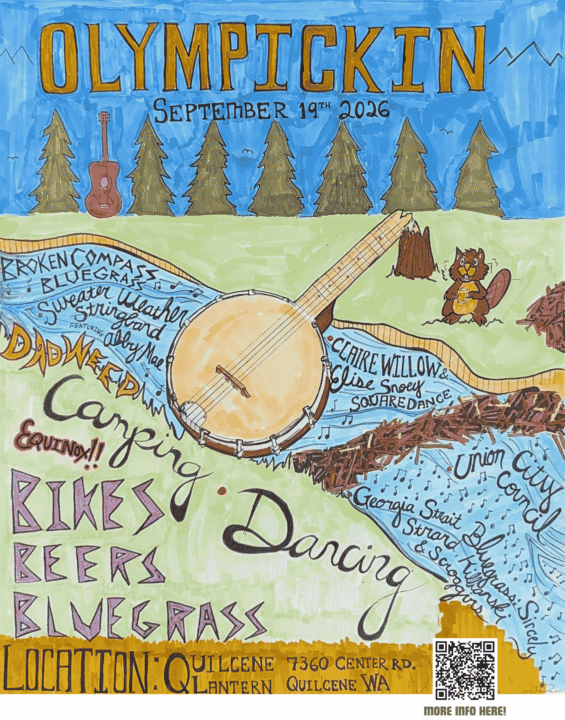 OLYMPICKIN
SEPTEMBER 19TH 2026
BROKEN COMPASS
BLUEGRASS
Sweater Weather
Stringband
FEATURING Abby Mae
DADWEED
CLAIRE WILLOW &
Elise Snoey
SQUAREDANCE
Camping
EQUINOX!!
Union City
Council
Georgia Strait Bluegrass Circle
Strand Killbank
& Scroggins
BIKES
BEERS
BLUEGRASS
Dancing
LOCATION: QUILCENE 7360 CENTER RD.
LANTERN QUILCENE WA
MORE INFO HERE!